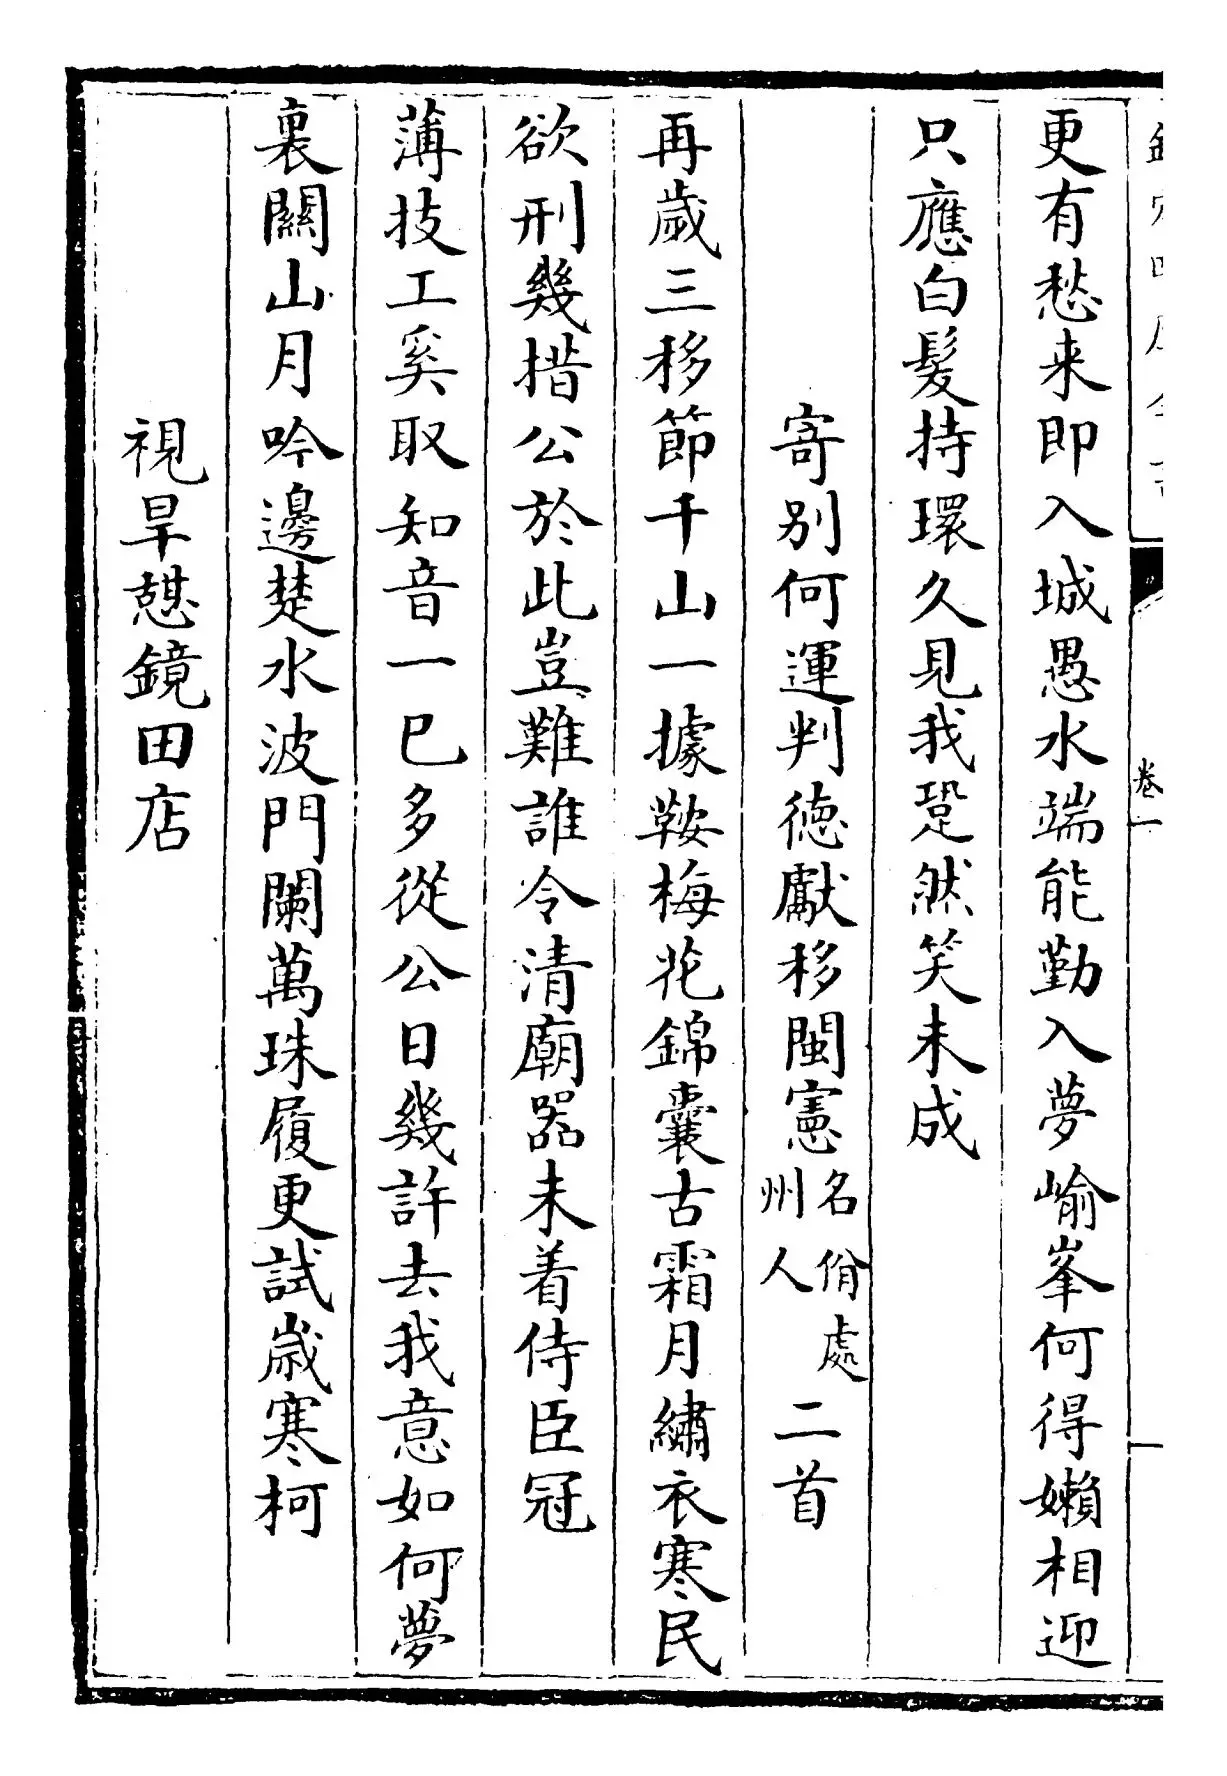 卷一
更有愁来即入城愚水端能勤入夢崳峯何得嬾相迎
只應白髪持環久見我跫然笑未成
寄别何運判徳獻移閩憲名佾處州人二首
再歲三移節千山一據鞍梅花錦囊古霜月繡衣寒民
欲刑幾措公於此豈難誰令清廟器未着侍臣冠
薄技工奚取知音一已多從公日幾許去我意如何夢
裏關山月吟邊楚水波門闌萬珠履更試嵗寒柯
視旱憇鏡田店